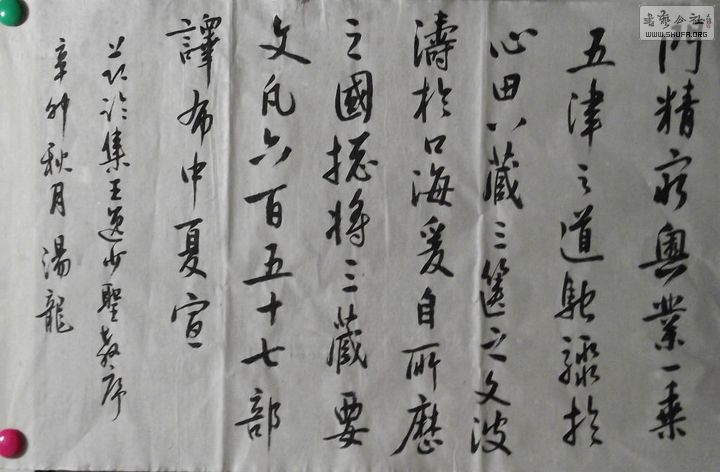 門精窮奧業一乘
五津之道馳驟於
心田八藏三篋之文波
濤於口海爰自所歷
之國揔將三藏要
文凡六百五十七部
譯布中夏宣
集王逸少聖教序
辛卯秋月 湯龍
書藝公社
WWW.SHUFA.ORG